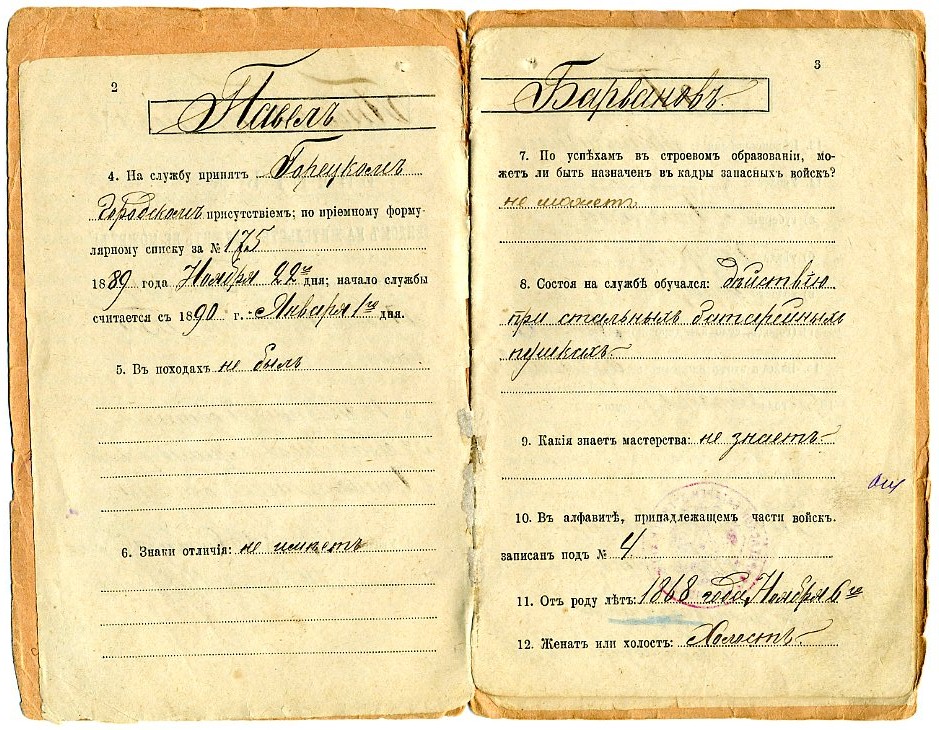 2
Павелъ
4. На службу принятъ Горецкомъ
Городскомъ присутствіемъ; по пріемному форму-
лярному списку за № 175
1889 года Ноября 22го дня; начало службы
считается съ 1890 г. Января 1го дня.
5. Въ походахъ не былъ
6. Знаки отличія: не имѣетъ
3
Барвановъ
7. По успѣхамъ въ строевомъ образованіи, мо-
жетъ ли быть назначенъ въ кадры запасныхъ войскъ?
не можетъ
8. Состоя на службѣ обучался: дѣйствію
при стальныхъ батарейныхъ
пушкахъ
9. Какія знаетъ мастерства: не знаетъ
10. Въ алфавитѣ, принадлежащемъ части войскъ.
записанъ подъ № 4
11. Отъ роду лѣтъ: 1868 года Ноября 6го
12. Женатъ или холостъ: Холостъ